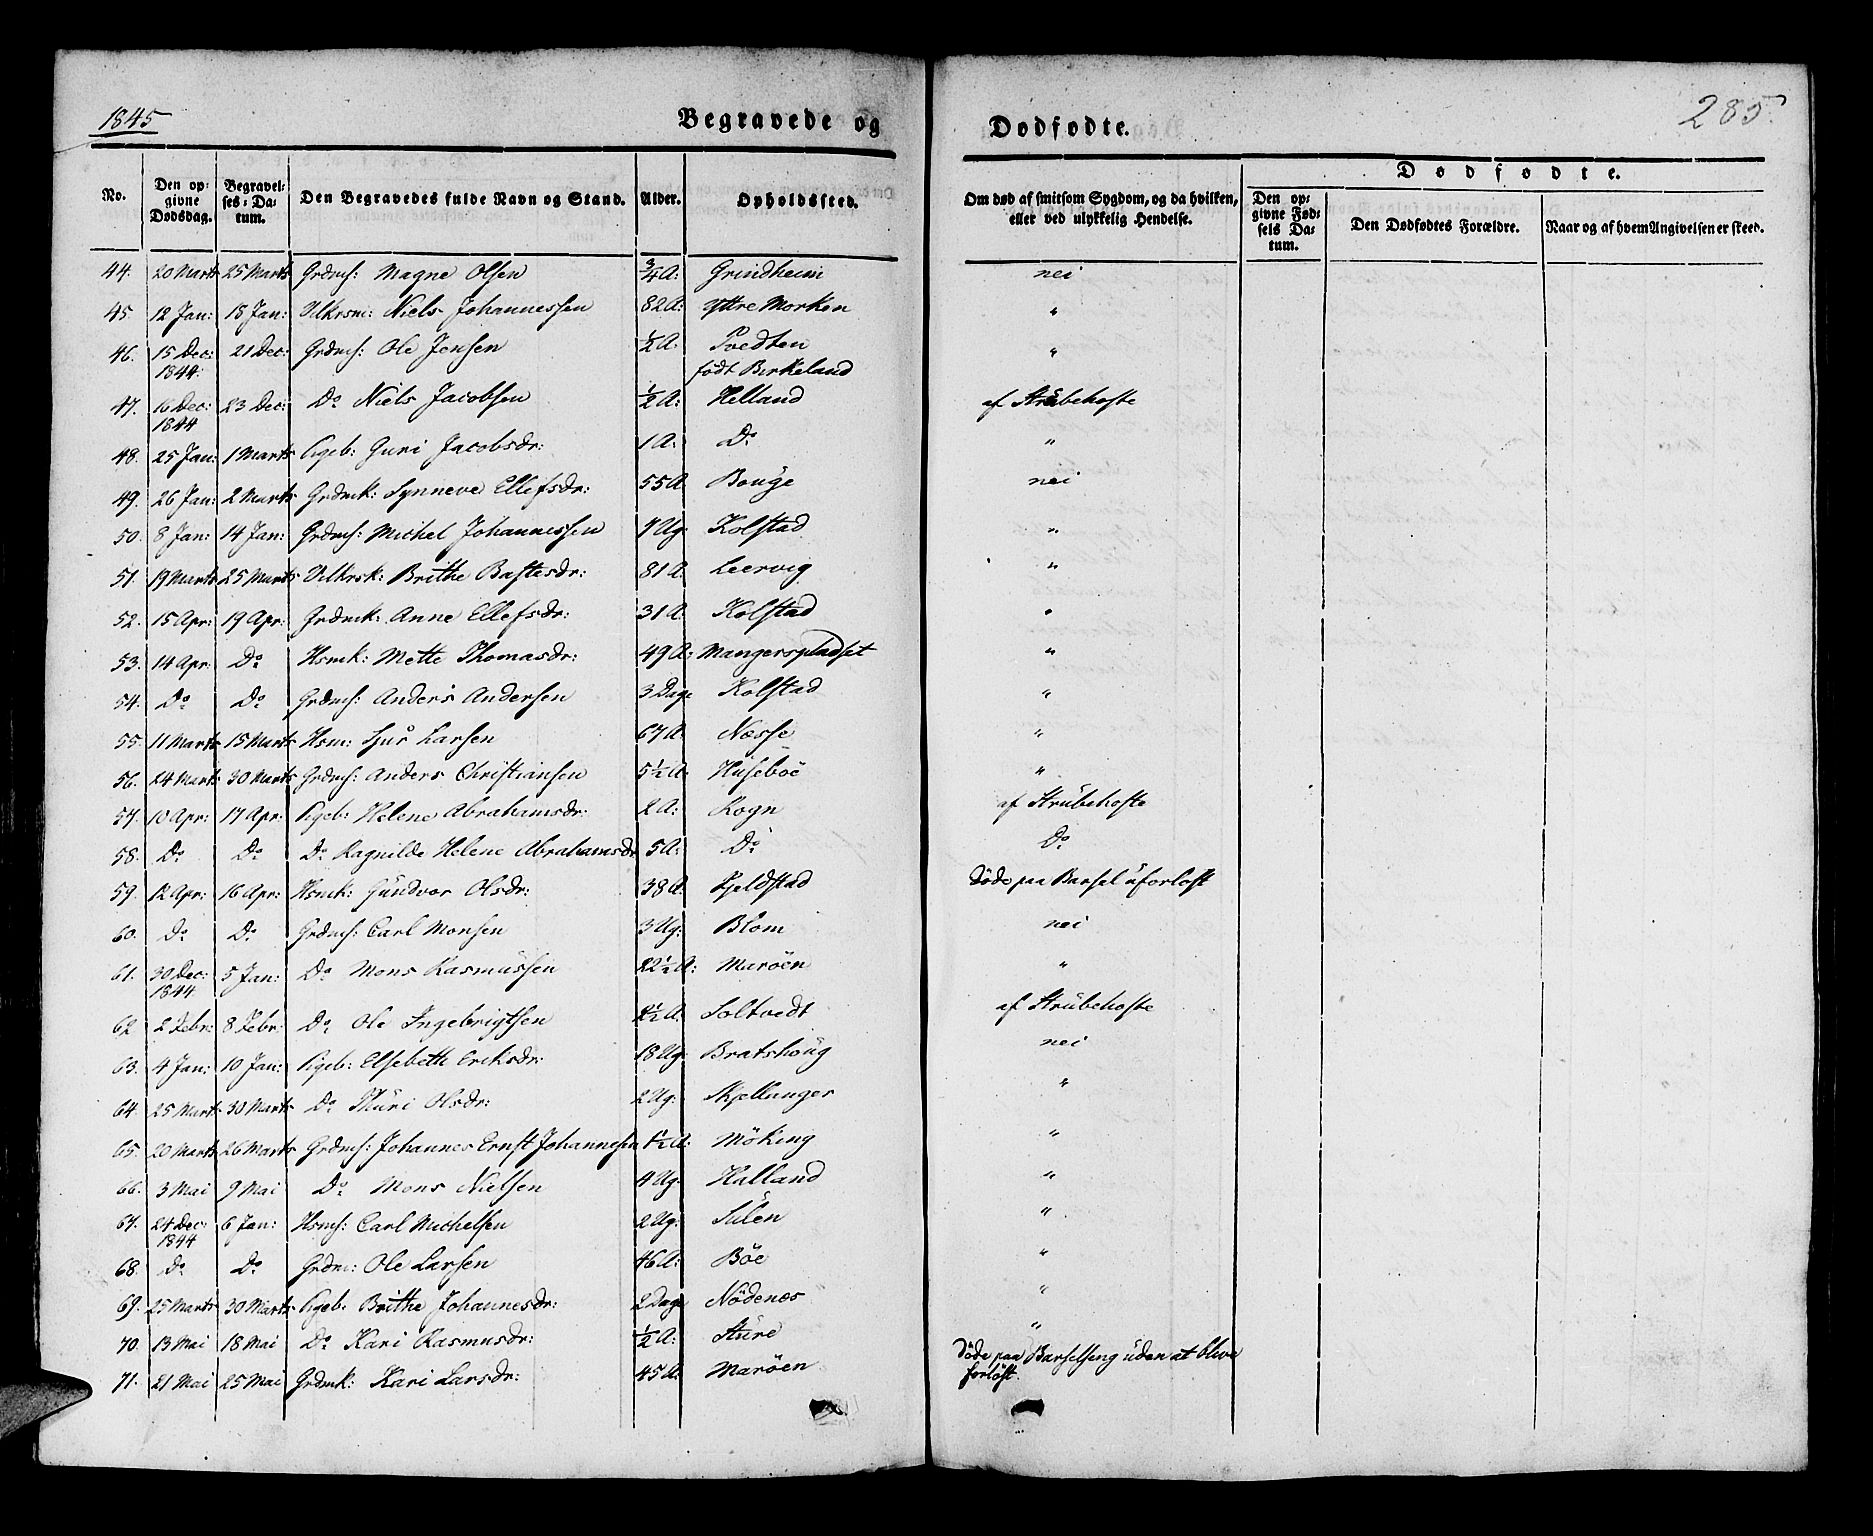 1845
Begravede og
Dødfødte.
285.
No.
Den opgivne Dødsdag.
Begravelses-Datum.
Den Begravedes fulde Navn og Stand.
Alder.
Opholdssted.
Om død af smitsom Sygdom, og da hvilken, eller ved ulykkelig Hendelse.
Dødfødte.
Den opgivne Fødsels Datum.
Den Dødfødtes Forældre.
Naar og af hvem Angivelsen er skeed.
44. 20 Marts 25 Marts Grdms: Magne Olsen 3/4 A: Grindheim nei
45. 12 Jan: 18 Jan: Vilkrsm: Niels Johannessen 82 A: Yttre Morken "
46. 15 Dec: 1844. 21 Dec: Grdms: Ole Jensen 1/2 A: Tvedten født Birkeland "
47. 16 Dec: 1844 23 Dec: Do Niels Jacobsen 1/2 A: Helland af Strubehoste
48. 25 Jan: 1 Marts Pigeb: Guri Jacobsdr: 1 A: Do "
49. 26 Jan: 2 Marts Grdmk: Synneve Ellefsdr: 55 A Bouge nei
50. 8 Jan: 14 Jan: Grdms: Michel Johannessen 7 Ug. Kolstad "
51. 19 Marts 25 Marts Vilkrsk: Brithe Bastesdr: 81 A Leervig "
52. 15 Apr: 19 Apr: Grdmk: Anne Ellefsdr: 31 A. Kolstad "
53. 14 Apr. Do Hsmk: Mette Thomasdr: 49 A: Mangerspladset "
54. Do Do Grdms: Anders Andersen 3 Dage Kolstad "
55. 11 Marts 15 Marts Hsm: Sjur Larsen 67 A. Næsse "
56. 24 Marts 30 Marts Grdms: Anders Christiansen 5 1/2 A: Huseboe "
57. 10 Apr: 17 Apr: Pigeb: Helene Abrahamsdr: 2 A: Rogn af Strubehoste
58. Do Do Do Ragnilde Helene Abrahamsdr 5 A: Do Do
59. 12 Apr: 16 Apr: Hsmk: Gundvor Olsdr: 38 A. Fjeldstad Døde paa Barsel uforløst
60. Do Do Grdms: Carl Monsen 3 Ug. Blom nei
61. 30 Dec: 1844 5 Jan: Do Mons Rasmussen 22 1/2 A: Marøen "
62 2 Febr: 8 Febr: Do Ole Ingebrigtsen 1/2 A. Soltvedt af Strubehoste
63. 4 Jan: 10 Jan: Pigeb: Elsebeth Eriksdr: 18 Ug: Bratshoug nei
64. 25 Marts 30 Marts Do Thuri Olsdr: 2 Ug. Skjellanger "
65. 20 Marts 26 Marts Grdms: Johannes Ernst Johannesen 1/2 A: Møking "
66. 3 Mai 9 Mai Do Mons Nielsen 4 Ug. Halland "
67. 24 Dec: 1844 6 Jan: Hsms: Carl Michelsen 2 Ug. Sulen "
68. Do Do Grdm: Ole Larsen 46 A: Bøe "
69. 25 Marts 30 Marts Pigeb. Brithe Johannesdr: 2 Dage Nødenes "
70. 13 Mai 18 Mai Do Kari Rasmusdr: 1/2 A: Sture "
71. 21 Mai 25 Mai Grdmk: Kari Larsdr: 45 A: Marøen Døde paa Barselseng uden at blive forløst.